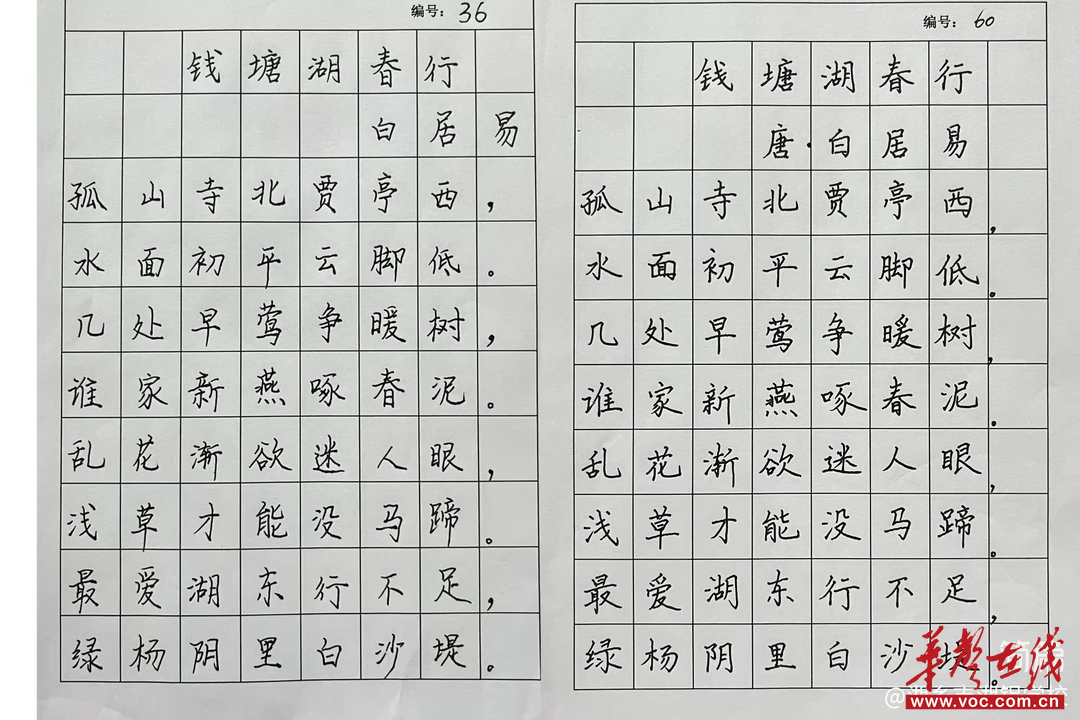 编号：36
钱塘湖春行
白居易
孤山寺北贾亭西，
水面初平云脚低。
几处早莺争暖树，
谁家新燕啄春泥。
乱花渐欲迷人眼，
浅草才能没马蹄。
最爱湖东行不足，
绿杨阴里白沙堤。
编号：60
钱塘湖春行
唐·白居易
孤山寺北贾亭西，
水面初平云脚低。
几处早莺争暖树，
谁家新燕啄春泥。
乱花渐欲迷人眼，
浅草才能没马蹄。
最爱湖东行不足，
绿杨阴里白沙堤。
华声在线
www.voc.com.cn